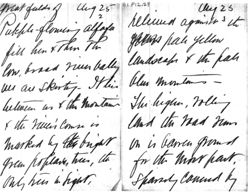 great fields of Aug 25
Purple-flowering alfalfa
fill him & then the
low, broad river valley
us as skirty. It lies
between us & the mountain
& the river's course is
marked by the bright
green poplars trees, the
only trees in sight,
Aug 25
relieved against the
pale yellow
landscape & the pale
blue mountains -
The higher, rolling
land the road runs
on is barren ground
for the most part,
Sparsely covered by